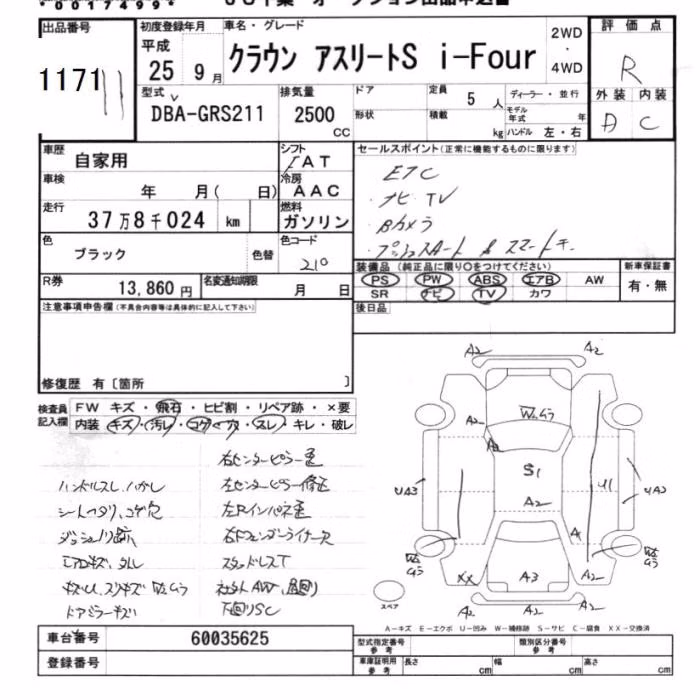 *00174999*
出品番号
1171
初度登録年月
平成
25 9月
車名・グレード
クラウン アスリートS i-Four
2WD
・
4WD
評価点
R
型式
DBA-GRS211
排気量
2500
CC
ドア
形状
定員
5 人
積載
kg
ディーラー・並行
モデル年式 年
ハンドル 左・右
外装 内装
A C
車歴
自家用
シフト
AT
車検
年 月( 日)
冷房
AAC
走行
37万8千024 km
燃料
ガソリン
色
ブラック
色替
色コード
210
R券
13,860 円
名変通知期限
月 日
セールスポイント(正常に機能するものに限ります)
ETC
・ナビ TV
・Bカメラ
・プッシュスタート & スマートキー
装備品 (純正品に限り○をつけてください)
PS PW ABS エアB AW
SR ナビ TV カワ
新車保証書
有・無
後日品
注意事項申告欄(不具合内容等は具体的に記入して下さい)
修復歴 有〔箇所 〕
検査員記入欄
FW キズ・飛石・ヒビ割・リペア跡・×要
内装 キズ・汚レ・コゲ・穴・スレ・キレ・破レ
ハンドルスレ、ハガレ
シートヘタリ、コゲ穴
ダッシュノリ跡
エアロキズ、ワレ
ドアミラーキズ
右センターピラー歪
左センターピラー修正
スタッドレスT
下回りSC
A2 A2
A2
S1
A2
UA3
U1
UA2
XX
A3
A2
A2 A2
スペア
A-キズ E-エクボ U-凹み W-補修跡 S-サビ C-腐食 XX-交換済
車台番号
60035625
登録番号
型式指定番号
参考
類別区分番号
参考
車庫証明用
参考
長さ cm
幅 cm
高さ cm